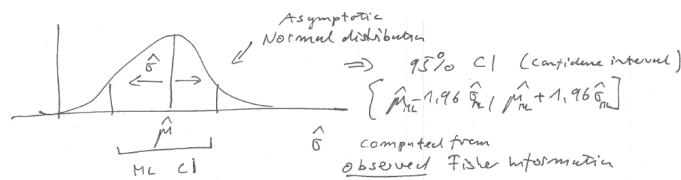 Asymptotic
Normal distribution
⇒ 95% CI (confidence interval)
σ̂
[μ̂_ML - 1,96 σ̂_ML, μ̂_ML + 1,96 σ̂_ML]
μ̂
σ̂ computed from
ML CI
observed Fisher information